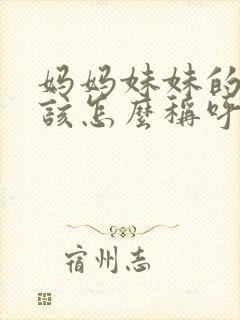 妈妈妹妹的
該怎麼稱呼
宿州志